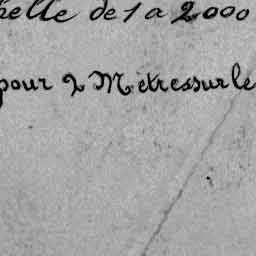 helle de 1 a 2000
pour 2 Metres sur le